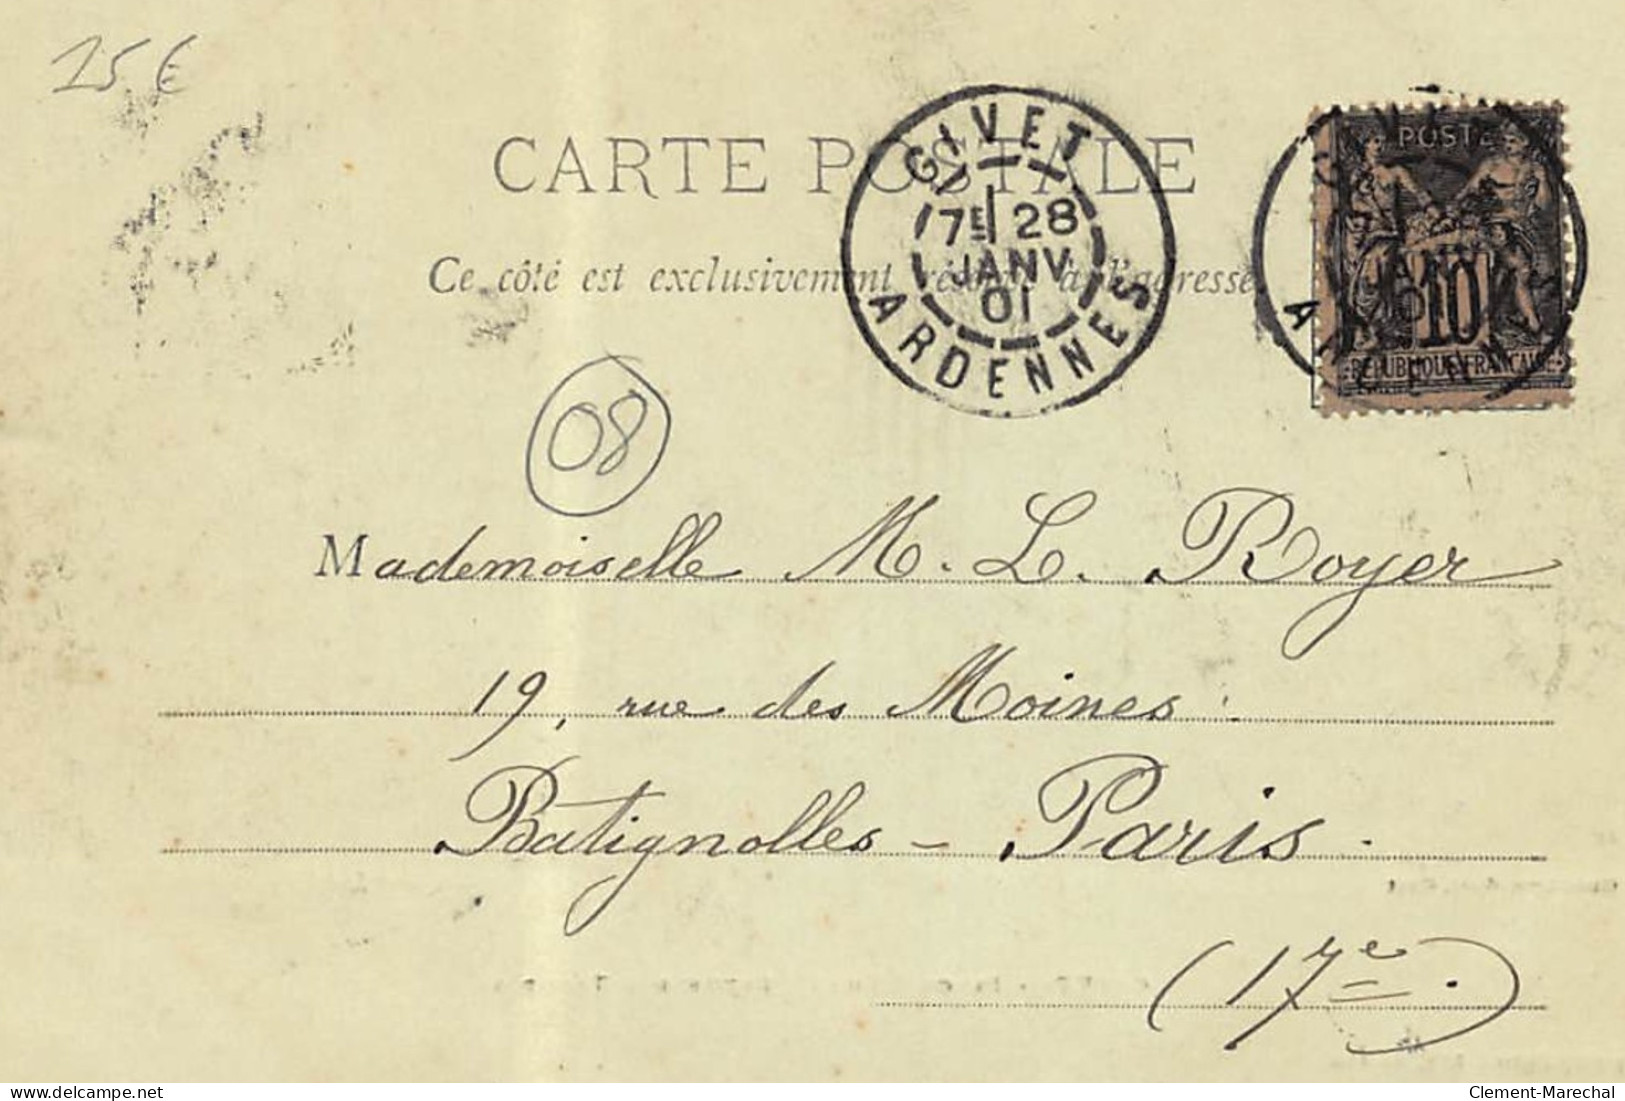 25 €
CARTE POSTALE
Ce côté est exclusivement réservé à l'adresse
GIVET
7E 28
JANV
01
ARDENNES
POSTE
10
REPUBLIQUE FRANCAISE
08
Mademoiselle M. L. Royer
19, rue des Moines
Batignolles - Paris.
(17e.)
delcampe.net
Clement-Marechal